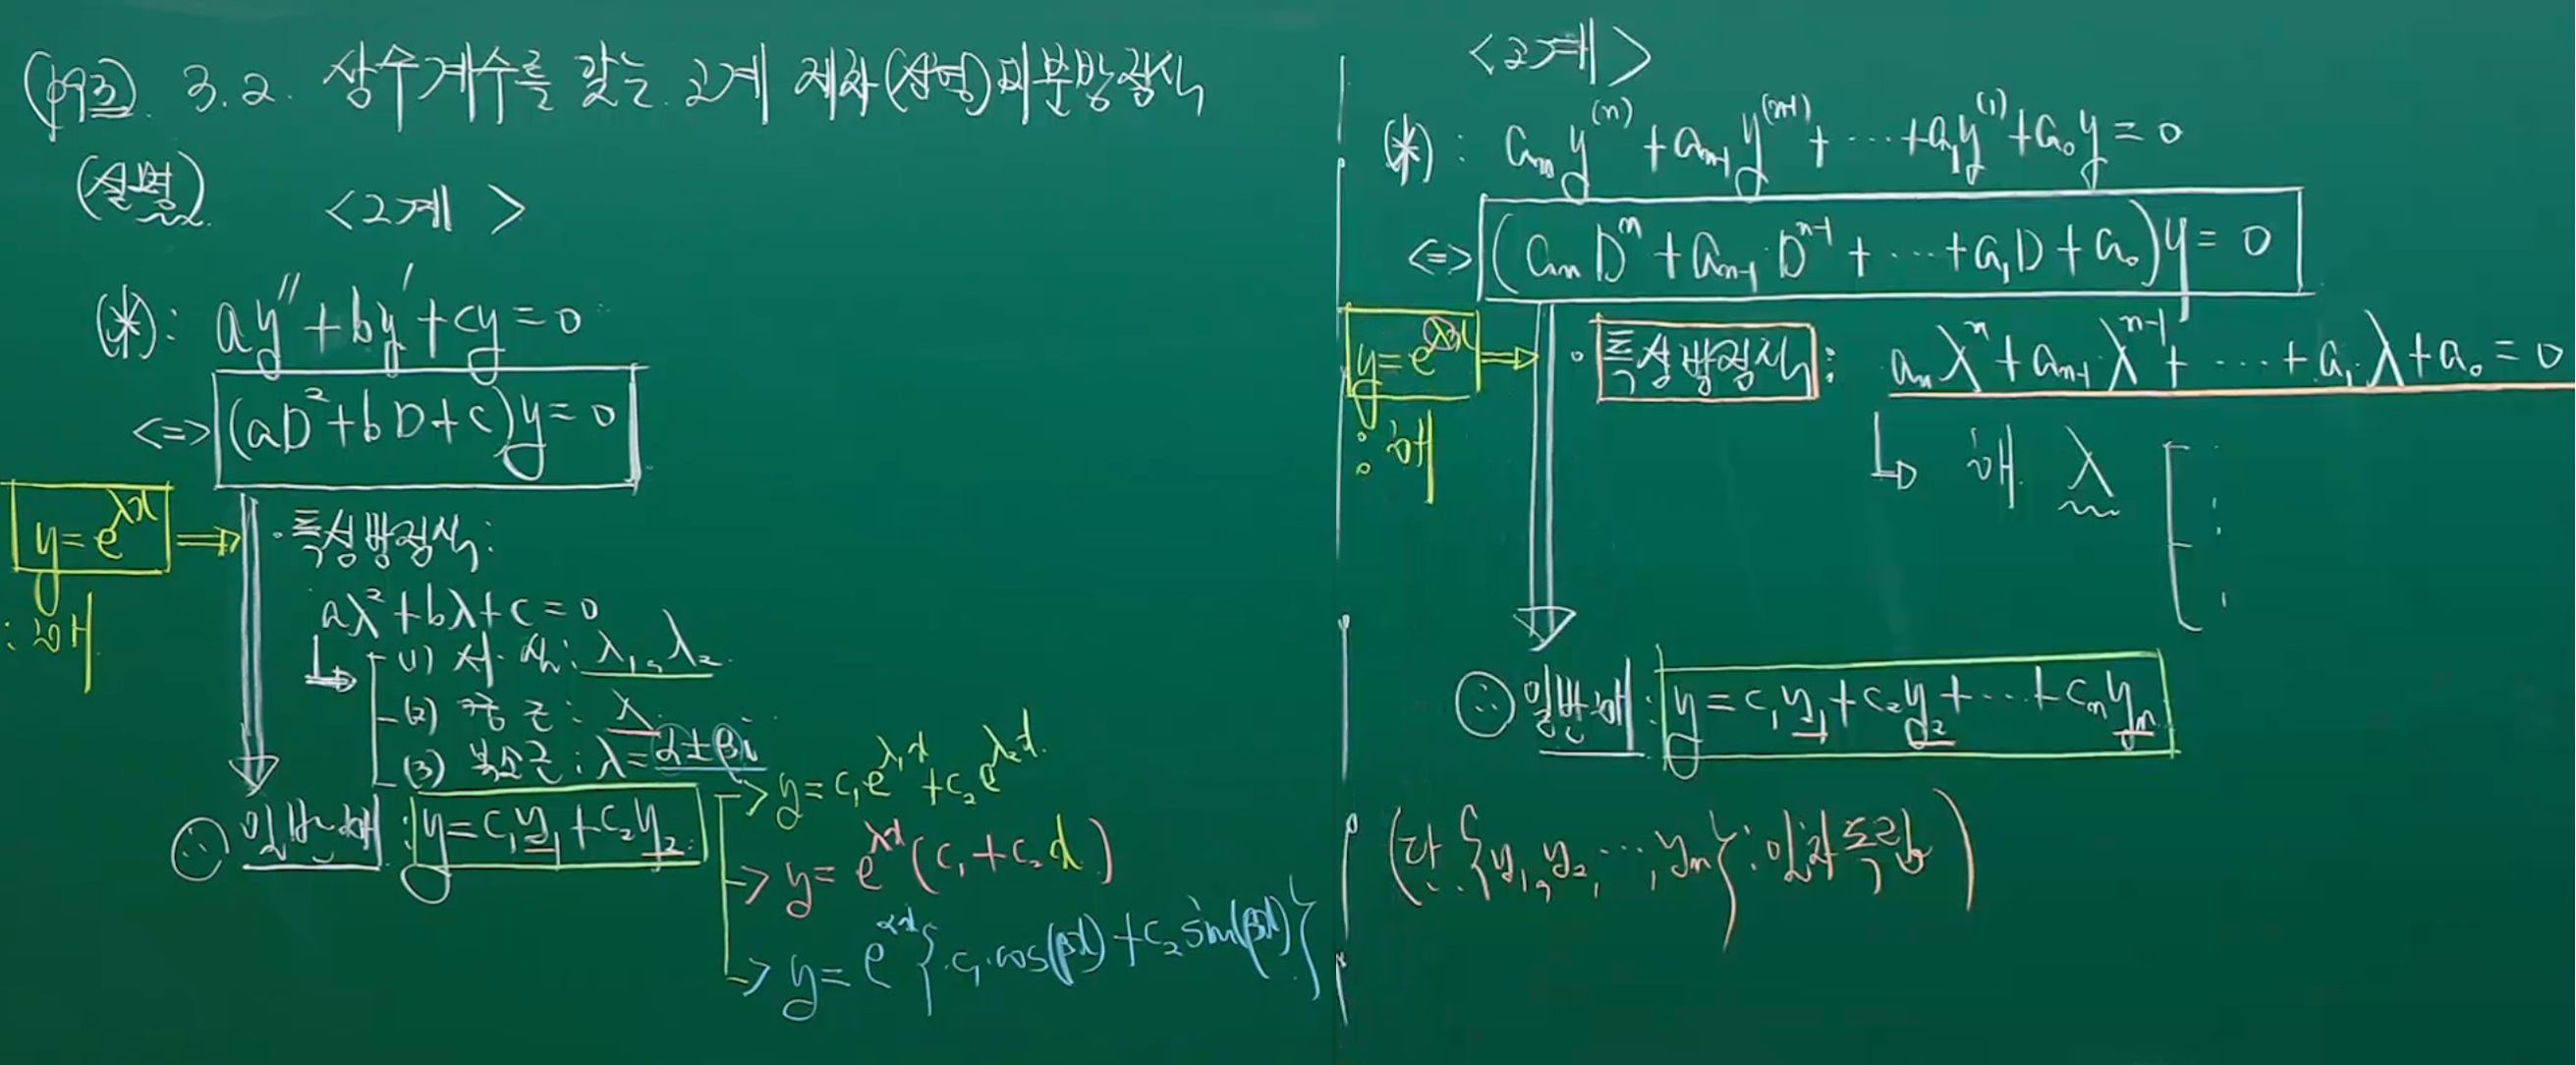 (p93). 3.2. 상수계수를 갖는 고계 제차(선형)미분방정식
(설명)
<2계>
(*): ay'' + by' + cy = 0
<=> (aD² + bD + c)y = 0
y = e^{λx}
: 해
· 특성방정식:
aλ² + bλ + c = 0
(1) 서·실: λ₁, λ₂
(2) 중근: λ
(3) 복소근: λ = α ± βi
∴ 일반해: y = c₁y₁ + c₂y₂
> y = c₁e^{λ₁x} + c₂e^{λ₂x}
> y = e^{λx}(c₁ + c₂x)
> y = e^{αx}{c₁·cos(βx) + c₂ sin(βx)}
<고계>
(*): aₙy⁽ⁿ⁾ + aₙ₋₁y⁽ⁿ⁻¹⁾ + ⋯ + a₁y⁽¹⁾ + a₀y = 0
<=> (aₙDⁿ + aₙ₋₁Dⁿ⁻¹ + ⋯ + a₁D + a₀)y = 0
y = e^{λx}
: 해
· 특성방정식: aₙλⁿ + aₙ₋₁λⁿ⁻¹ + ⋯ + a₁λ + a₀ = 0
해 λ
∴ 일반해: y = c₁y₁ + c₂y₂ + ⋯ + cₙyₙ
(단. {y₁, y₂, ⋯, yₙ}: 일차독립)